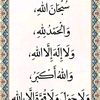 سُبْحَانَ اللهِ،
وَالْحَمْدُ لِلهِ،
وَلَا إِلَهَ إِلَّا اللهُ،
وَاللهُ أَكْبَرُ،
وَلَا حَوْلَ وَلَا قُوَّةَ إِلَّا بِاللهِ